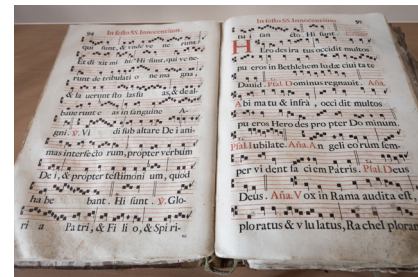 94 In festo SS. Innocentium.
qui sunt, & vnde ve ne runt?
Et di xit mi hi: Hi sunt, qui ve ne-
runt de tribulati o ne ma gna,
& la uerunt sto las su as, & de al-
baue runt e as in sanguine A-
gni. ℣. Vi di sub altare De i ani-
mas interfecto rum, propter verbum
De i, & propter testimoni um, quod
ha be bant. Hi sunt. ℣. Glo-
ri a Patri, & Fi li o, & Spi ri-
In festo SS. Innocentium. 95
tu i san cto. Hi sunt.
Hero des ira tus occidit multos
pu eros in Bethlehem Iudæ ciui ta te
Dauid. Psal. Dominus regnauit. Aña.
A bi ma tu & infrà, occi dit multos
pu eros Herodes pro pter Do minum.
Psal. Iubilate. Aña. An geli eo rum sem-
per vi dent fa ciem Patris. Psal. Deus
Deus. Aña. V ox in Rama audita est,
plo ratus & v lu latus, Ra chel plorans